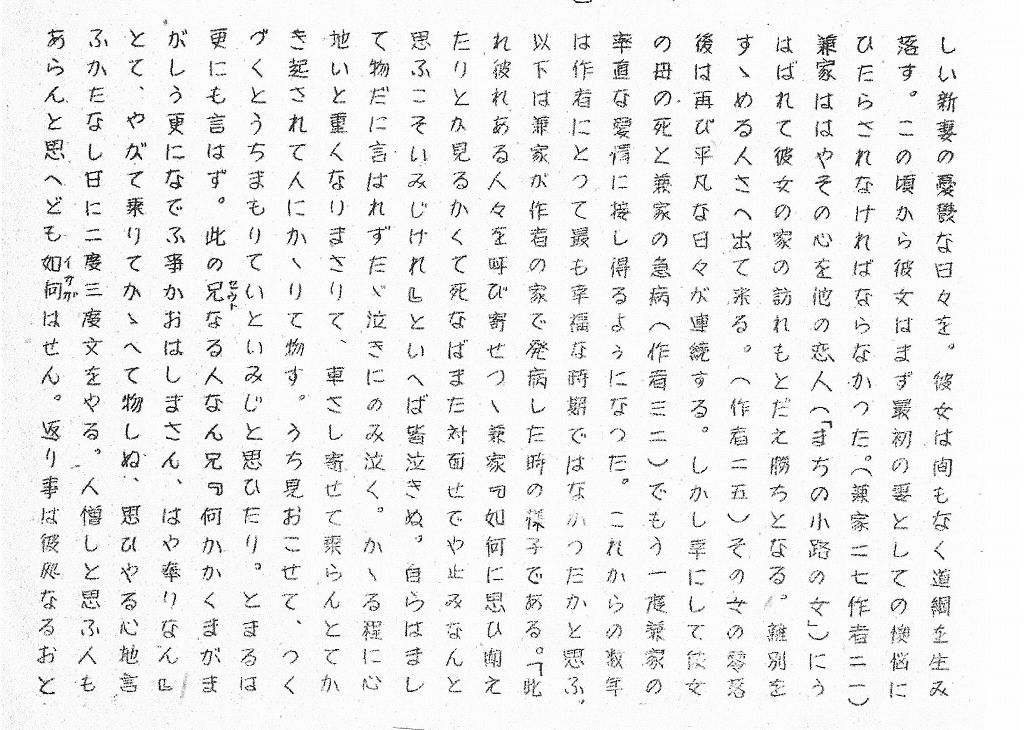 しい新妻の憂鬱な日々を。彼女は間もなく道綱を生み
落す。この頃から彼女はまず最初の妻としての懊悩に
ひたらされなければならなかつた。(兼家二七作者二一)
兼家ははやその心を他の恋人(「まちの小路の女」)にう
ばはれて彼女の家の訪れもとだえ勝ちとなる。離別を
すゝめる人さへ出て来る。(作者二五)その女の零落
後は再び平凡な日々が連続する。しかし幸にして彼女
の母の死と兼家の急病(作者三二)でもう一度兼家の
率直な愛情に接し得るようになつた。これからの数年
は作者にとつて最も幸福な時期ではなかつたかと思ふ、
以下は兼家が作者の家で発病した時の様子である。「此
れ彼れある人々を呼び寄せつゝ兼家『如何に思ひ聞え
たりとか見るかくて死なばまた対面せでや止みなんと
思ふこそいみじけれ』といへば皆泣きぬ。自らはまし
て物だに言はれずたゞ泣きにのみ泣く。かゝる程に心
地いと重くなりまさりて、車さし寄せて乗らんとてか
き起されて人にかゝりて物す。うち見おこせて、つく
づくとうちまもりていといみじと思ひたり。とまるは
更にも言はず。此の兄セウトなる人なん兄『何かかくまがま
がしう更になでふ事かおはしまさん、はや奉りなん』
とて、やがて乗りてかゝへて物しぬ、思ひやる心地言
ふかたなし日に二度三度文をやる。人僧しと思ふ人も
あらんと思へども如何イカガはせん。返り事は彼処なるおと